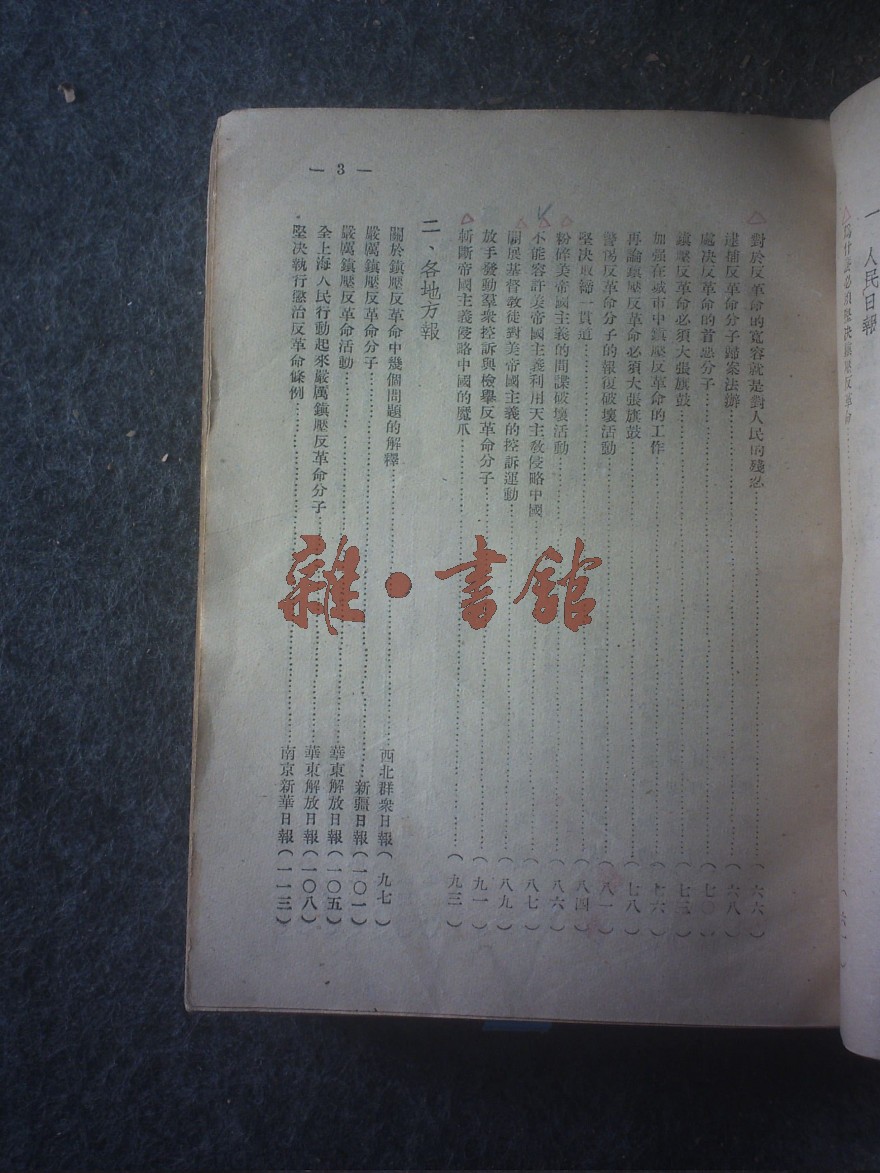 一、人民日報
爲什麽必須堅决鎭壓反革命
— 3 —
對於反革命的寬容就是對人民的殘忍……(六六)
逮捕反革命分子歸案法辦……(六八)
處决反革命的首惡分子……(七〇)
鎭壓反革命必須大張旗鼓……(七三)
加强在城市中鎭壓反革命的工作……(七六)
再論鎭壓反革命必須大張旗鼓……(七八)
警惕反革命分子的報復破壞活動……(八一)
堅决取締一貫道……(八四)
粉碎美帝國主義的間諜破壞活動……(八六)
不能容許美帝國主義利用天主敎侵略中國……(八七)
開展基督敎徒對美帝國主義的控訴運動……(八九)
放手發動羣衆控訴與檢舉反革命分子……(九一)
斬斷帝國主義侵略中國的魔爪……(九三)
二、各地方報
關於鎭壓反革命中幾個問題的解釋……西北群衆日報(九七)
嚴厲鎭壓反革命分子……新疆日報(一〇一)
嚴厲鎭壓反革命活動……華東解放日報(一〇五)
全上海人民行動起來嚴厲鎭壓反革命分子……華東解放日報(一〇八)
堅决執行懲治反革命條例……南京新華日報(一一三)
雜·書館